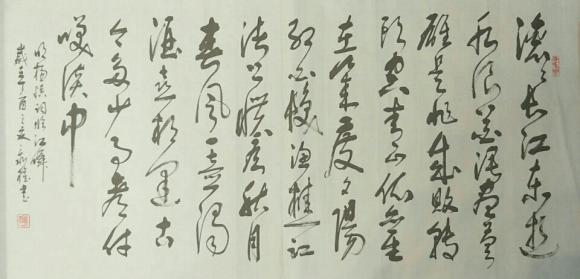 滚々长江东逝
水浪花淘尽英
雄是非成败转
头空青山依旧
在几度夕陽
红白发渔樵江
渚上惯看秋月
春风一壶浊
酒喜相逢古
今多少事都付
笑谈中
明杨慎词临江僊
歲酉之夏書